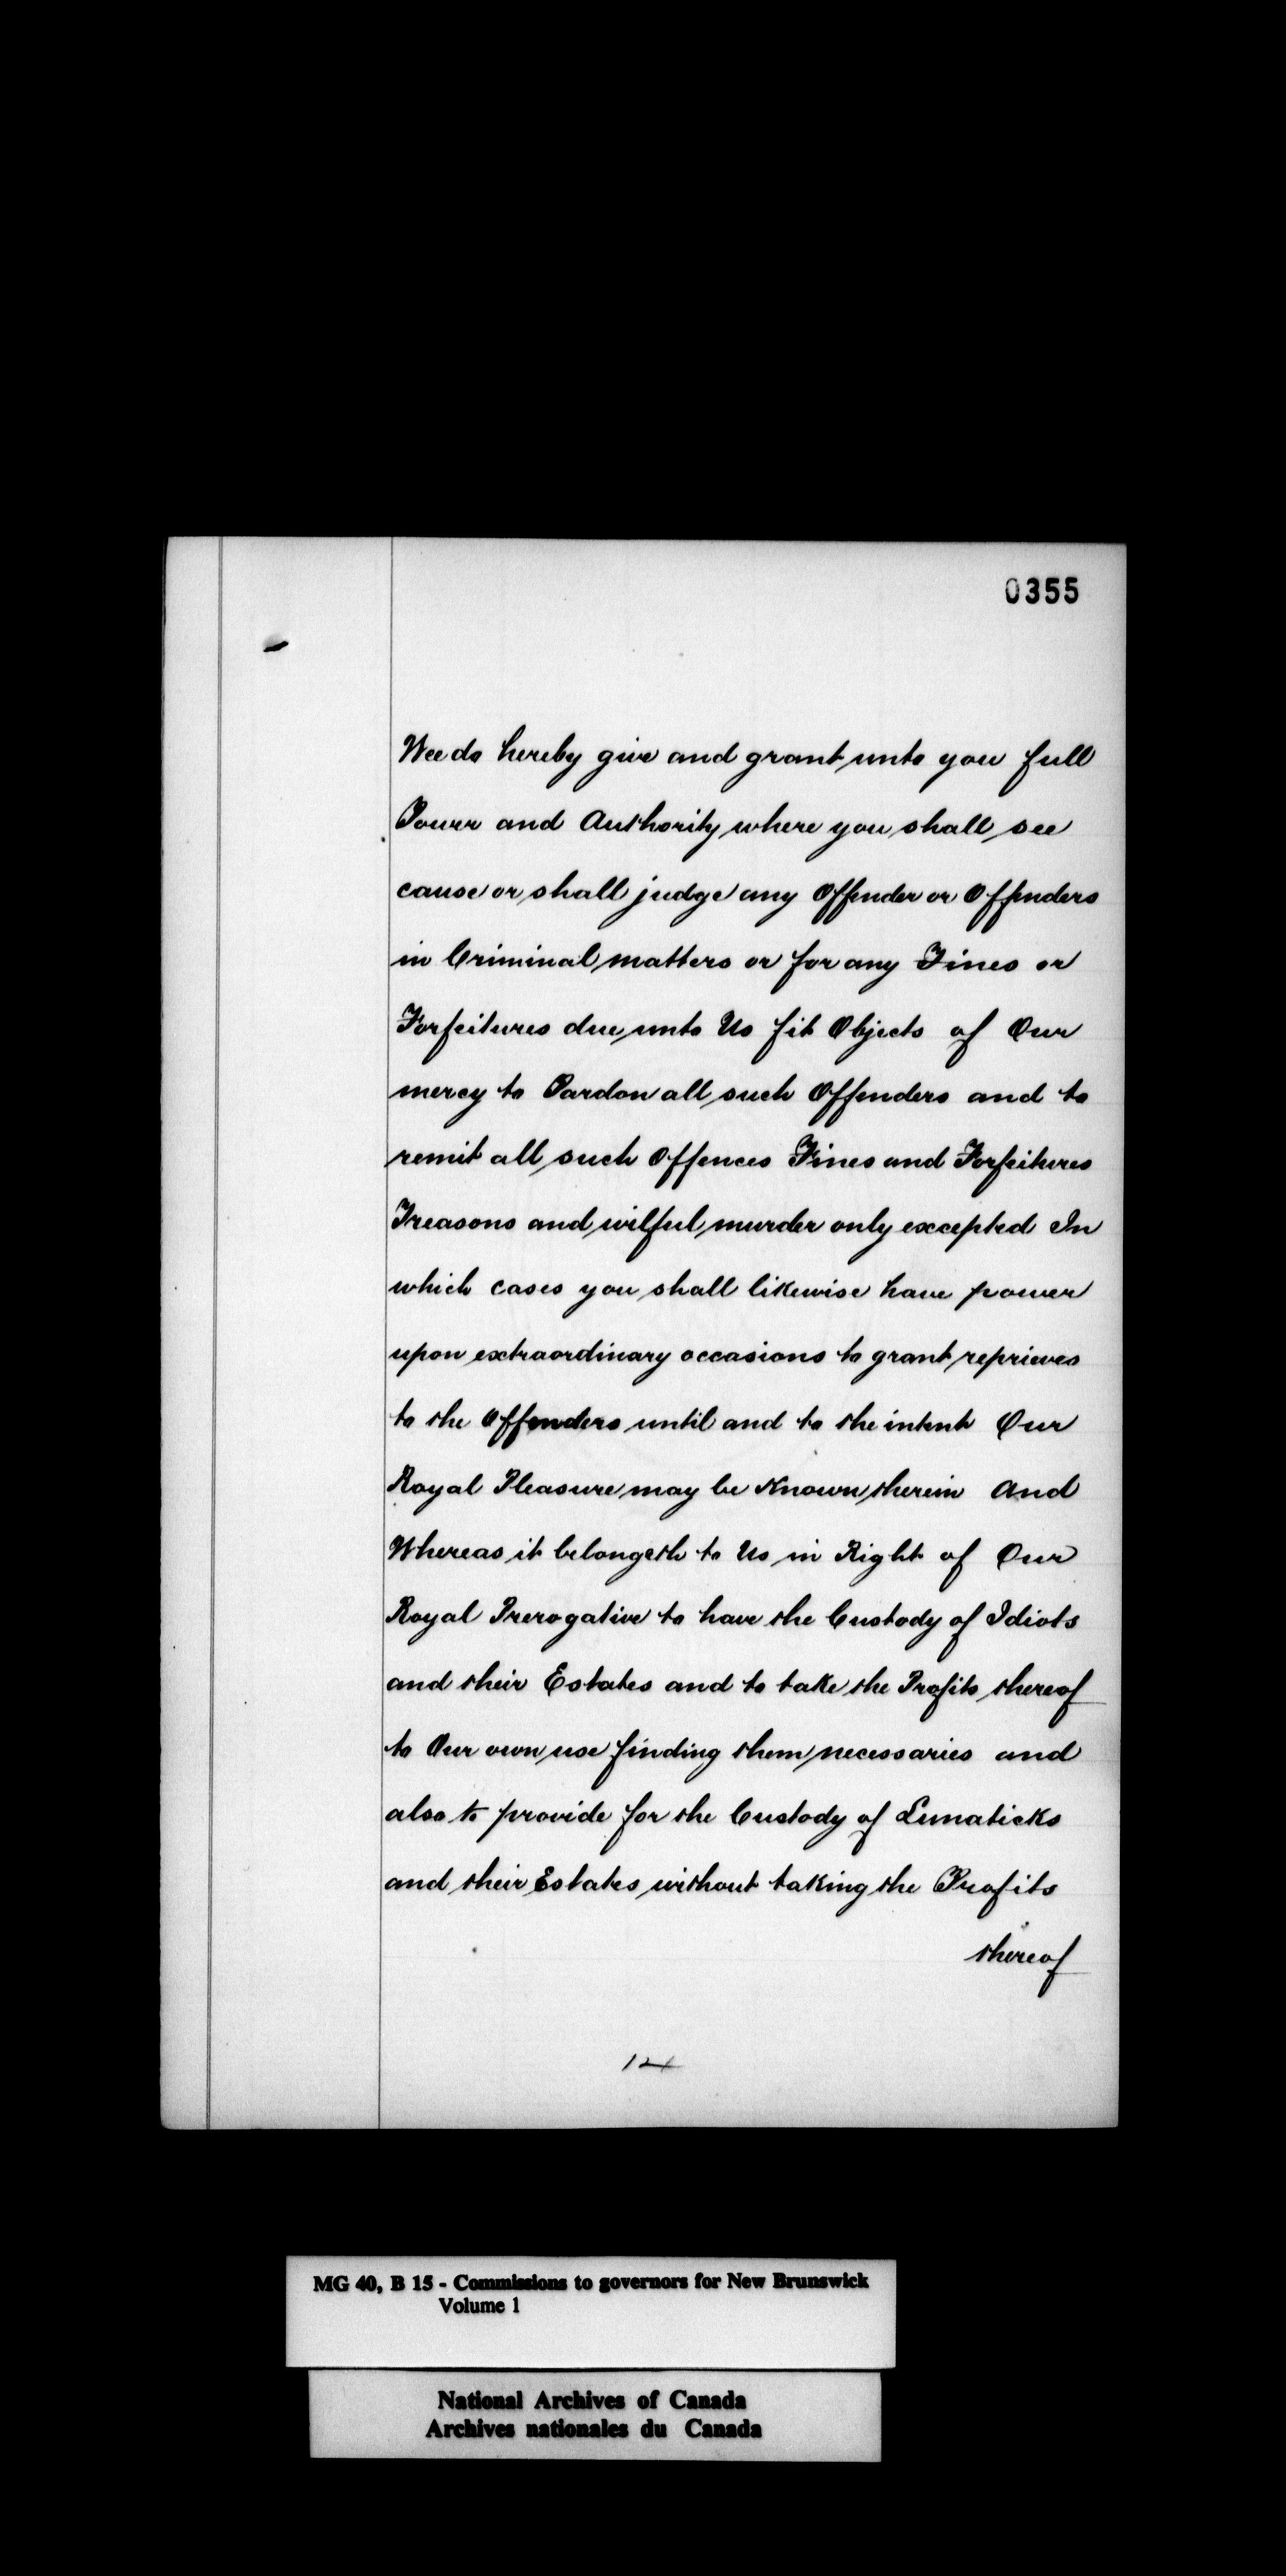 0355
Wee do hereby give and grant unto you full
Power and Authority where you shall see
cause or shall judge any Offender or Offenders
in Criminal matters or for any Fines or
Forfeitures due unto Us fit Objects of Our
mercy to Pardon all such Offenders and to
remit all such Offences Fines and Forfeitures
Treasons and wilful murder only excepted In
which cases you shall likewise have power
upon extraordinary occasions to grant reprieves
to the Offenders until and to the intent Our
Royal Pleasure may be Known therein And
Whereas it belongeth to Us in Right of Our
Royal Prerogative to have the Custody of Idiots
and their Estates and to take the Profits thereof
to Our own use finding them necessaries and
also to provide for the Custody of Lunaticks
and their Estates without taking the Profits
thereof
MG 40, B 15 - Commissions to governors for New Brunswick
Volume 1
National Archives of Canada
Archives nationales du Canada